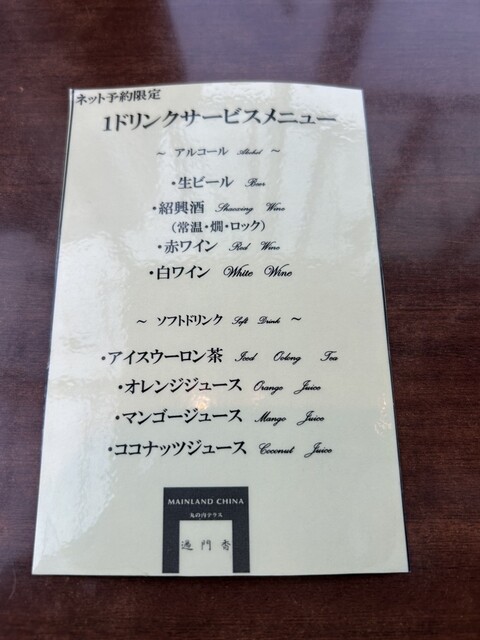 ネット予約限定
1ドリンクサービスメニュー
~ アルコール Alcohol ~
・生ビール Beer
・紹興酒 Shaoxing Wine
(常温・燗・ロック)
・赤ワイン Red Wine
・白ワイン White Wine
~ ソフトドリンク Soft Drink ~
・アイスウーロン茶 Iced Oolong Tea
・オレンジジュース Orange Juice
・マンゴージュース Mango Juice
・ココナッツジュース Coconut Juice
MAINLAND CHINA
丸の内テラス
過門香